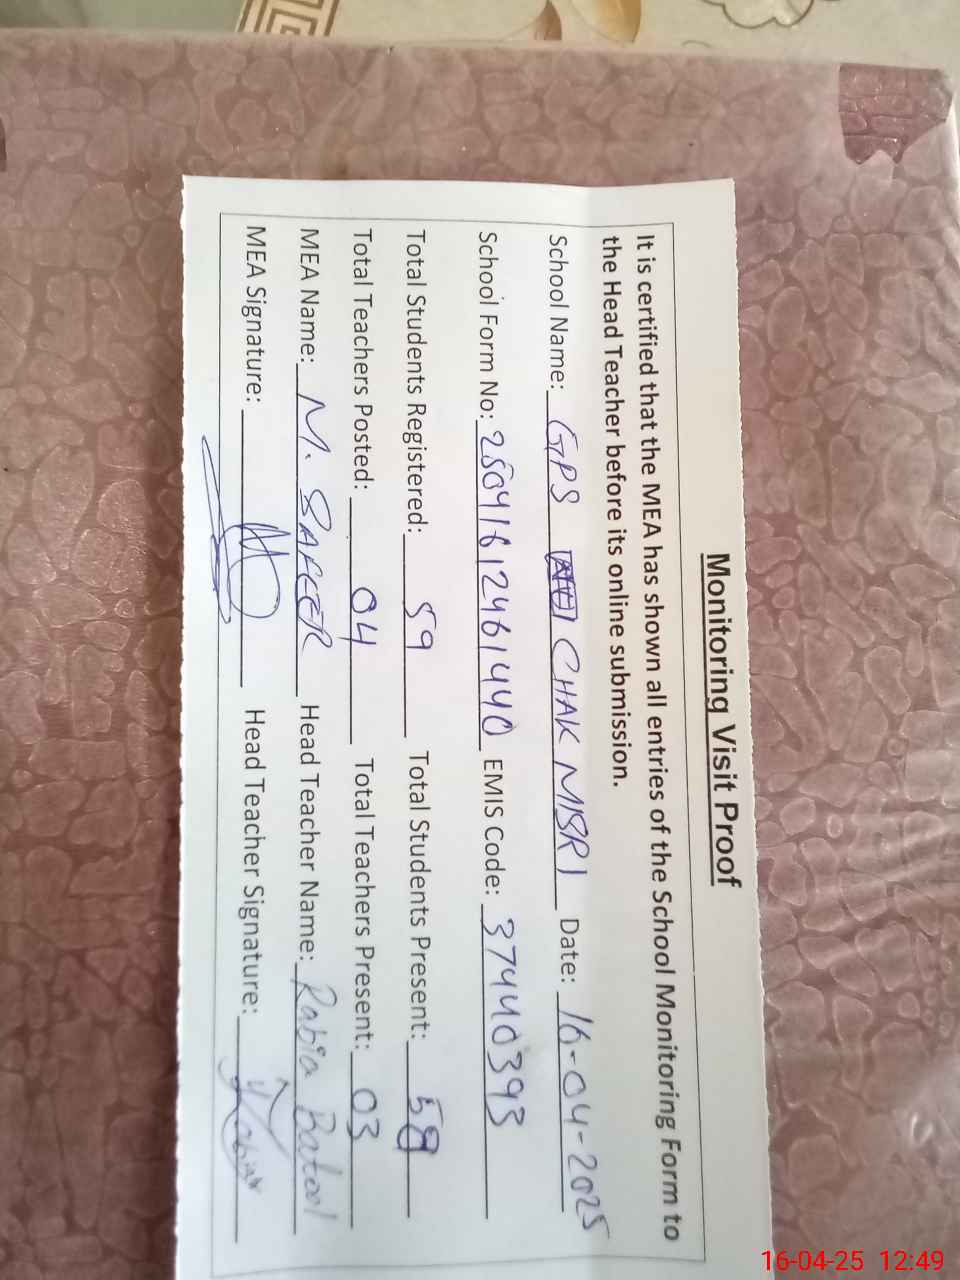 Monitoring Visit Proof
It is certified that the MEA has shown all entries of the School Monitoring Form to
the Head Teacher before its online submission.
School Name: GPS CHAK MISRI Date: 16-04-2025
School Form No: 25041612461440 EMIS Code: 37440393
Total Students Registered: 59 Total Students Present:
Total Teachers Posted: 04 Total Teachers Present: 03
MEA Name: M. SAFEER Head Teacher Name: Rabia Batool
MEA Signature: Head Teacher Signature:
16-04-25 12:49